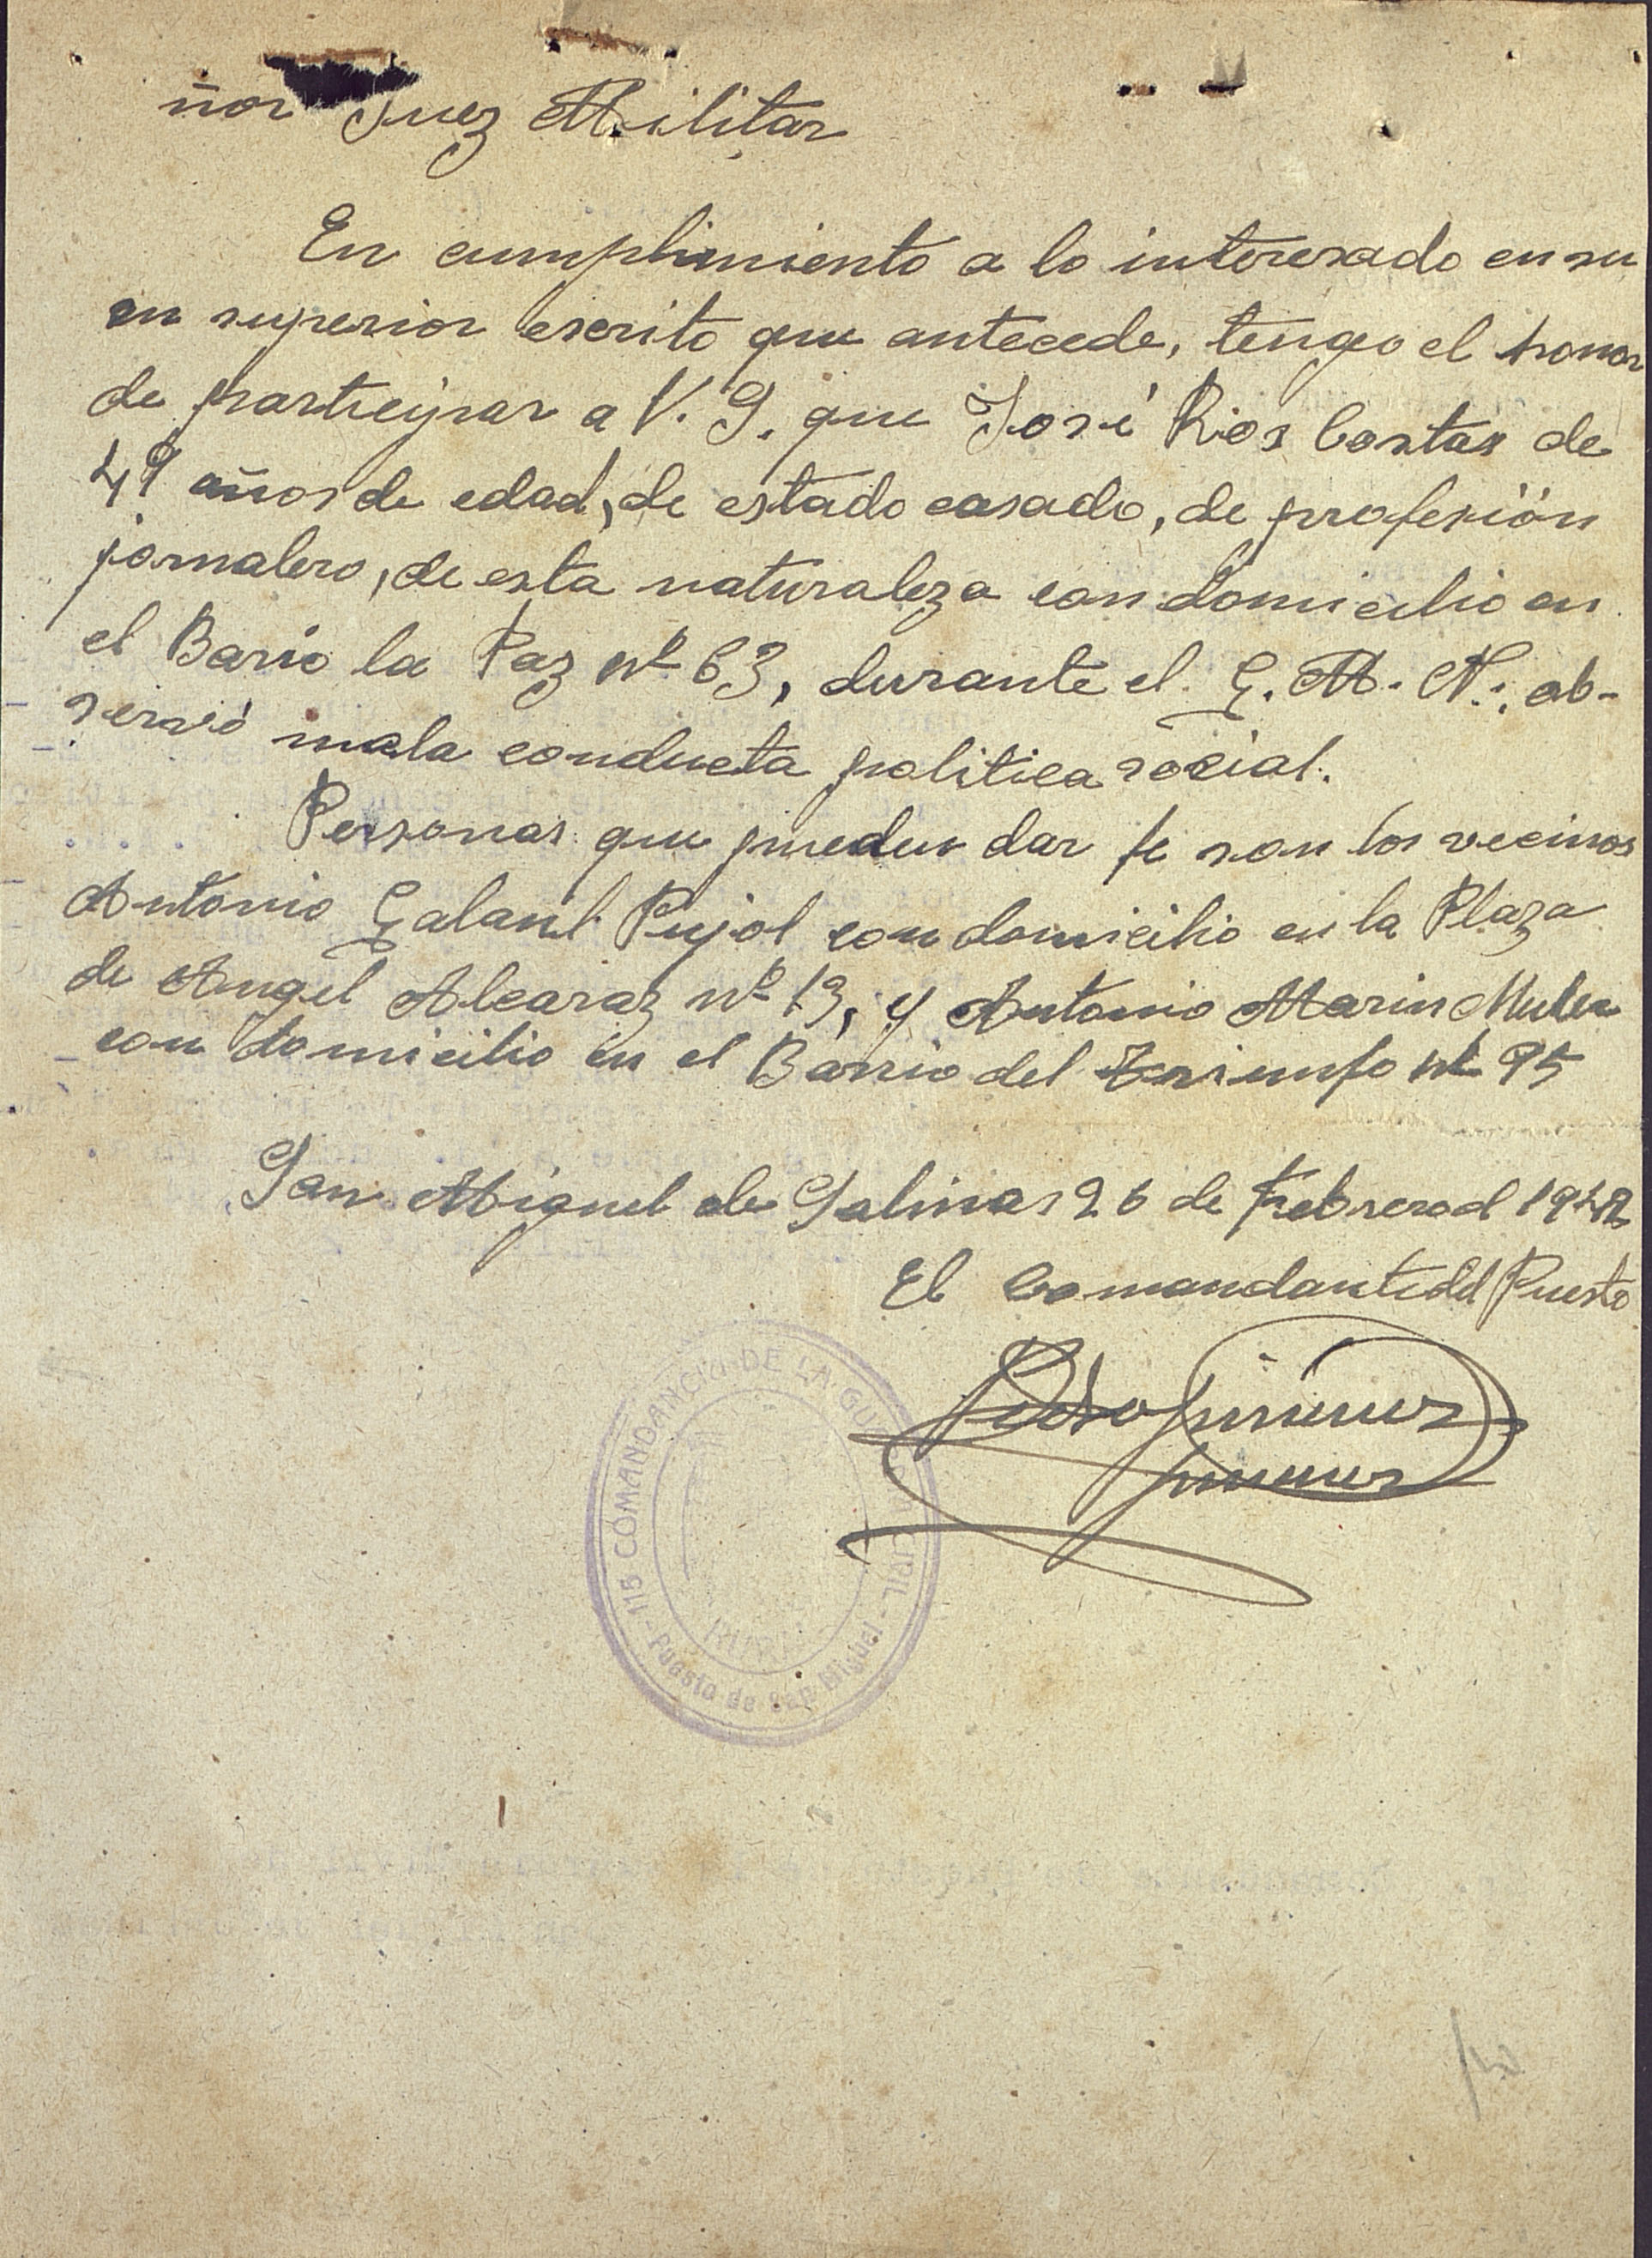 ñor Juez Militar
En cumplimiento a lo interesado en su
en superior escrito que antecede, tengo el honor
de participar a V. S. que José Rios Costas de
49 años de edad, de estado casado, de profesión
jornalero, de esta naturaleza con domicilio en
el Barrio la Paz nº 63, durante el G. M. N., ob-
servó mala conducta politica social.
Personas que pueden dar fe son los vecinos
Antonio Galant Pujol con domicilio en la Plaza
de Angel Alcaraz nº 13, y Antonio Marin
con domicilio en el Barrio del Triunfo nº 95
San Miguel de Salinas 26 de Febrero d 1942
El Comandante del Puesto
Pedro Jimenez
Jimenez
115 COMANDANCIA DE LA GUARDIA CIVIL
Puesto de San Miguel
RURAL